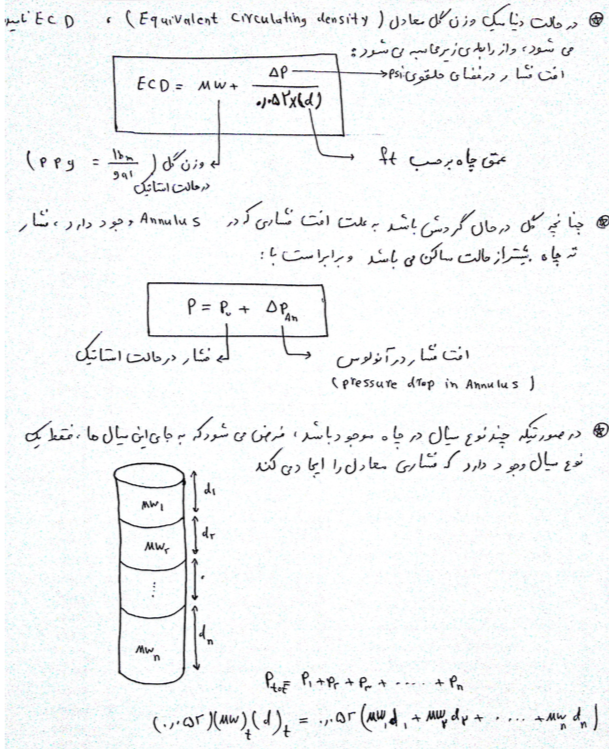 در حالت دینامیک وزن گل معادل (Equivalent circulating density) ، ECD نامیده
می شود، و از رابطه ی زیر محاسبه می شود:
ECD = MW + ΔP / ۰٫۰۵۲×(d)
افت فشار در فضای حلقوی psi
عمق چاه برحسب ft
وزن گل (ppg = lbm/gal)
در حالت استاتیک
چنانچه گل در حال گردش باشد به علت افت فشاری که در Annulus وجود دارد، فشار
ته چاه بیشتر از حالت ساکن می باشد و برابر است با:
P = P٠ + ΔP An
فشار در حالت استاتیک
افت فشار در آنولوس
(pressure drop in Annulus)
در صورتیکه چند نوع سیال در چاه موجود باشد، فرض می شود که به جای این سیال ها، فقط یک
نوع سیال وجود دارد که فشاری معادل را ایجاد می کند
MW₁ d₁
MW۲ d۲
⋮
MWₙ dₙ
P tot = P₁ + P۲ + P۳ + ..... + Pₙ
(۰٫۰۵۲)(MW)t(d)t = ۰٫۰۵۲(MW₁d₁ + MW۲d۲ + .... + MWₙdₙ)